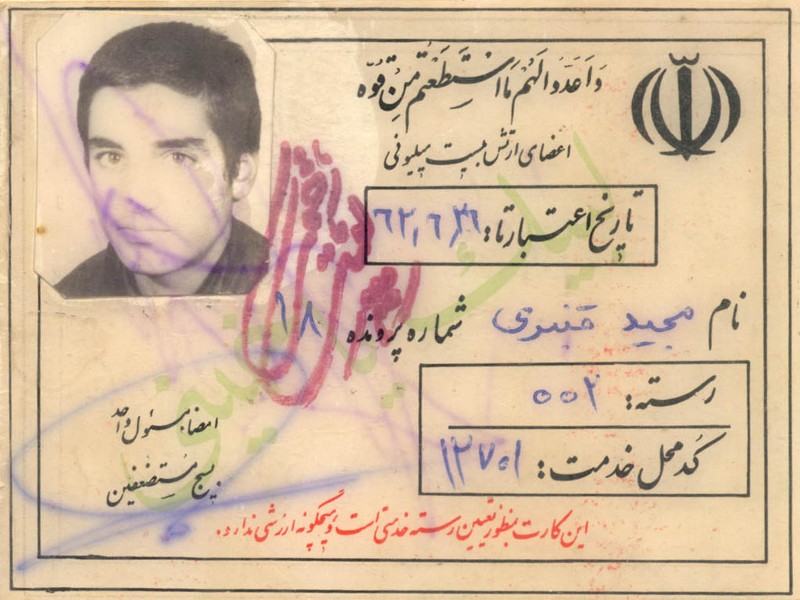 وَاَعِدّوا لَهُم مَا اسْتَطَعْتُم مِن قُوّه
اعضای ارتش بیست میلیونی
تاریخ اعتبار تا: ۶۲،۶،۳۱
نام مجید قنبری شماره پرونده ۱۸
رسته: ۵۵۲
کُد محل خدمت: ۱۲۷۵۱
امضاء مسئول واحد
بسیج مستضعفین
این کارت بمنظور تعیین رسته خدمتی است و هیچگونه ارزشی ندارد.
لبیک یا خمینی